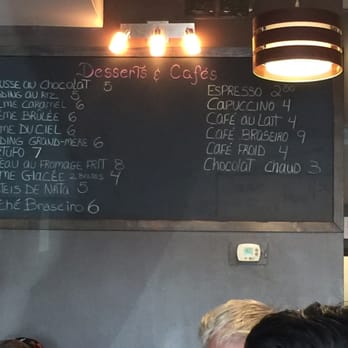 Desserts & Cafés
USSE AU CHOCOLAT 5
DING AU RIZ 5
ME CARAMEL 6
ME BRÛLÉE 6
ME DU CIEL 6
DING GRAND-MÈRE 6
TUFO 7
EAU AU FROMAGE FRIT 8
ME GLACÉE 2 BOULES 4
TEIS DE NATA 5
CHÉ BRASEIRO 6
ESPRESSO 2.80
CAPUCCINO 4
CAFÉ AU LAIT 4
CAFÉ BRASEIRO 9
CAFÉ FROID 4
CHOCOLAT CHAUD 3